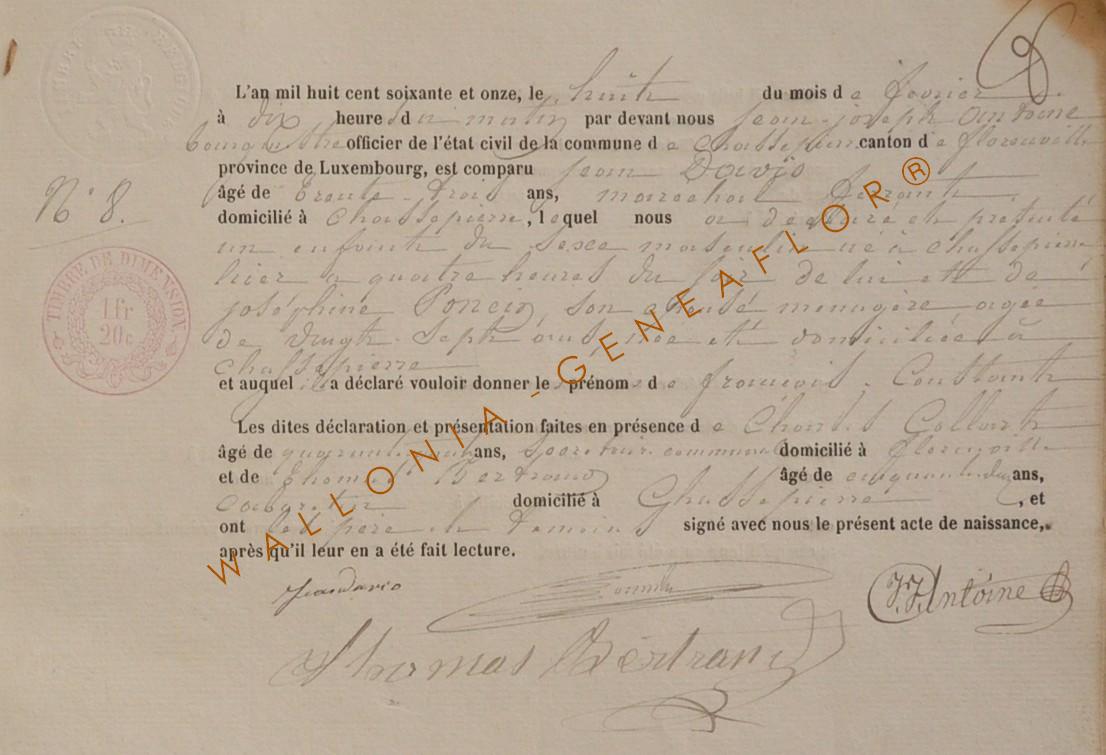 L'an mil huit cent soixante et onze, le huit du mois de fevrier
à dix heure du matin par devant nous jean-joseph antoine
bourgmestre officier de l'état civil de la commune de chassepierre canton de florenville
province de Luxembourg, est comparu jean Davio
âgé de trente-trois ans, marechal ferrant
N° 8.
domicilié à chassepierre, lequel nous a declaré et presenté
un enfant du sexe masculin né à chassepierre
hier a quatre heures du soir de lui et de
joséphine Poncin, son epouse menagère, agée
TIMBRE DE DIMENSION
1 fr
20 c
de vingt-sept ans, née et domiciliée à
chassepierre
et auquel il a déclaré vouloir donner le prénom de françois-Constant
Les dites déclaration et présentation faites en présence de Charles Collart
âgé de ans, secretaire communal domicilié à florenville
et de thomas Bertrand âgé de cinquante ans,
domicilié à Chassepierre, et
ont les père et temoins signé avec nous le présent acte de naissance,
après qu'il leur en a été fait lecture.
Jean Davio
J.J. Antoine
Thomas Bertrand
WALLONIA-GENEAFLOR®